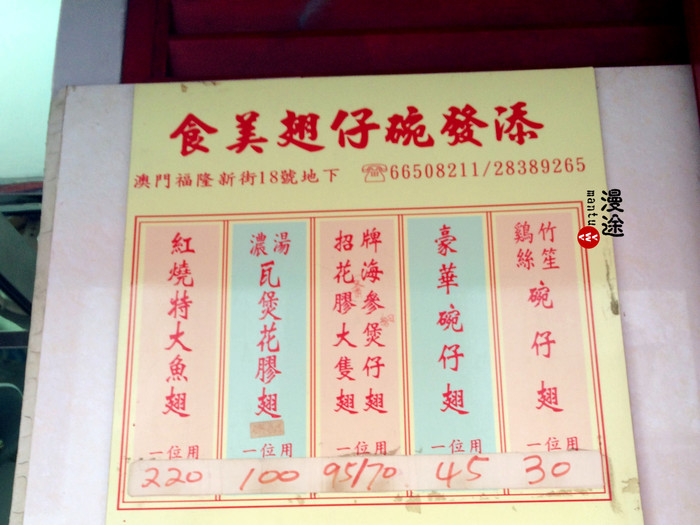 添發碗仔翅美食
澳門福隆新街18號地下 ☏66508211/28389265
竹笙
鷄絲
碗仔翅
一位用
30
豪華碗仔翅
一位用
45
招牌
海參煲仔翅
花膠大隻翅
一位用
95/70
濃湯
瓦煲花膠翅
一位用
100
紅燒特大魚翅
一位用
220
漫途
mantu